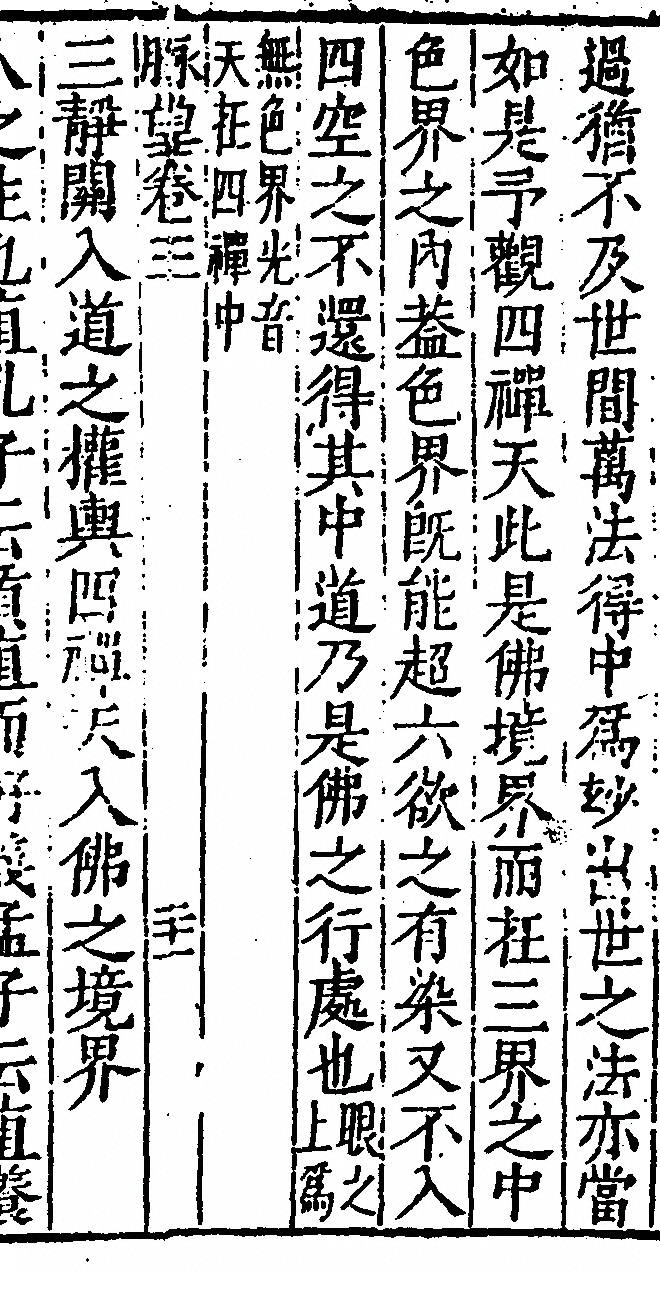 過猶不及世間萬法得中爲妙出世之法亦當
如是予觀四禪天此是佛境界而在三界之中
色界之內葢色界既能超六欲之有染又不入
四空之不還得其中道乃是佛之行處也眼之上爲
無色界光音
天在四禪中
脉望卷三 二十一
三靜關入道之權輿四禪天入佛之境界